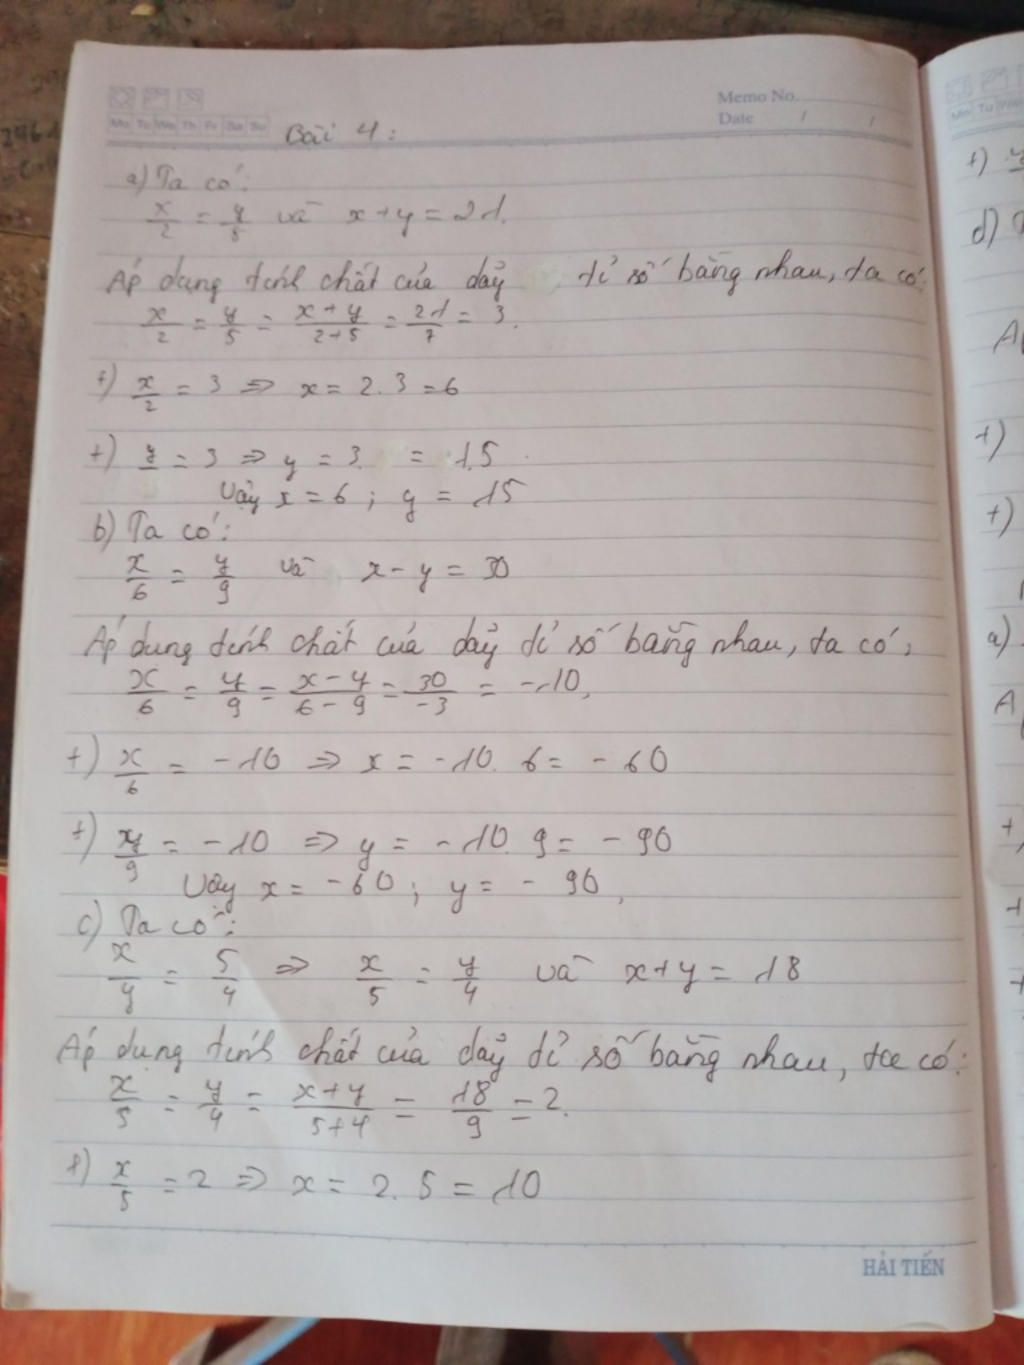 Memo No.
Mo Tu We Th Fr Sa Su
Date / /
Bài 4:
a) Ta có:
x/2 = y/5 và x+y = 21.
Áp dụng tính chất của dãy tỉ số bằng nhau, ta có:
x/2 = y/5 = x+y/2+5 = 21/7 = 3.
+) x/2 = 3 => x = 2.3 = 6
+) y = 3 => y = 3. = 15
Vậy x = 6 ; y = 15
b) Ta có:
x/6 = y/9 và x-y = 30
Áp dụng tính chất của dãy tỉ số bằng nhau, ta có,
x/6 = y/9 = x-y/6-9 = 30/-3 = -10,
+) x/6 = -10 => x = -10. 6 = -60
+) y/9 = -10 => y = -10. 9 = -90
Vậy x = -60 ; y = -90,
c) Ta có:
x/y = 5/4 => x/5 = y/4 và x+y = 18
Áp dụng tính chất của dãy tỉ số bằng nhau, ta có:
x/5 = y/4 = x+y/5+4 = 18/9 = 2.
+) x/5 = 2 => x = 2.5 = 10
HẢI TIẾN
+)
d)
+)
+)
a)